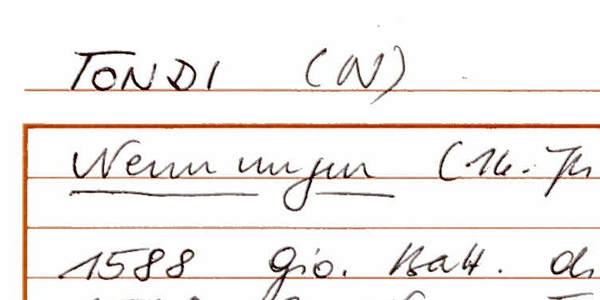 TONDI (N)
Nennungen (16. Jh
1588 Gio. Batt. di